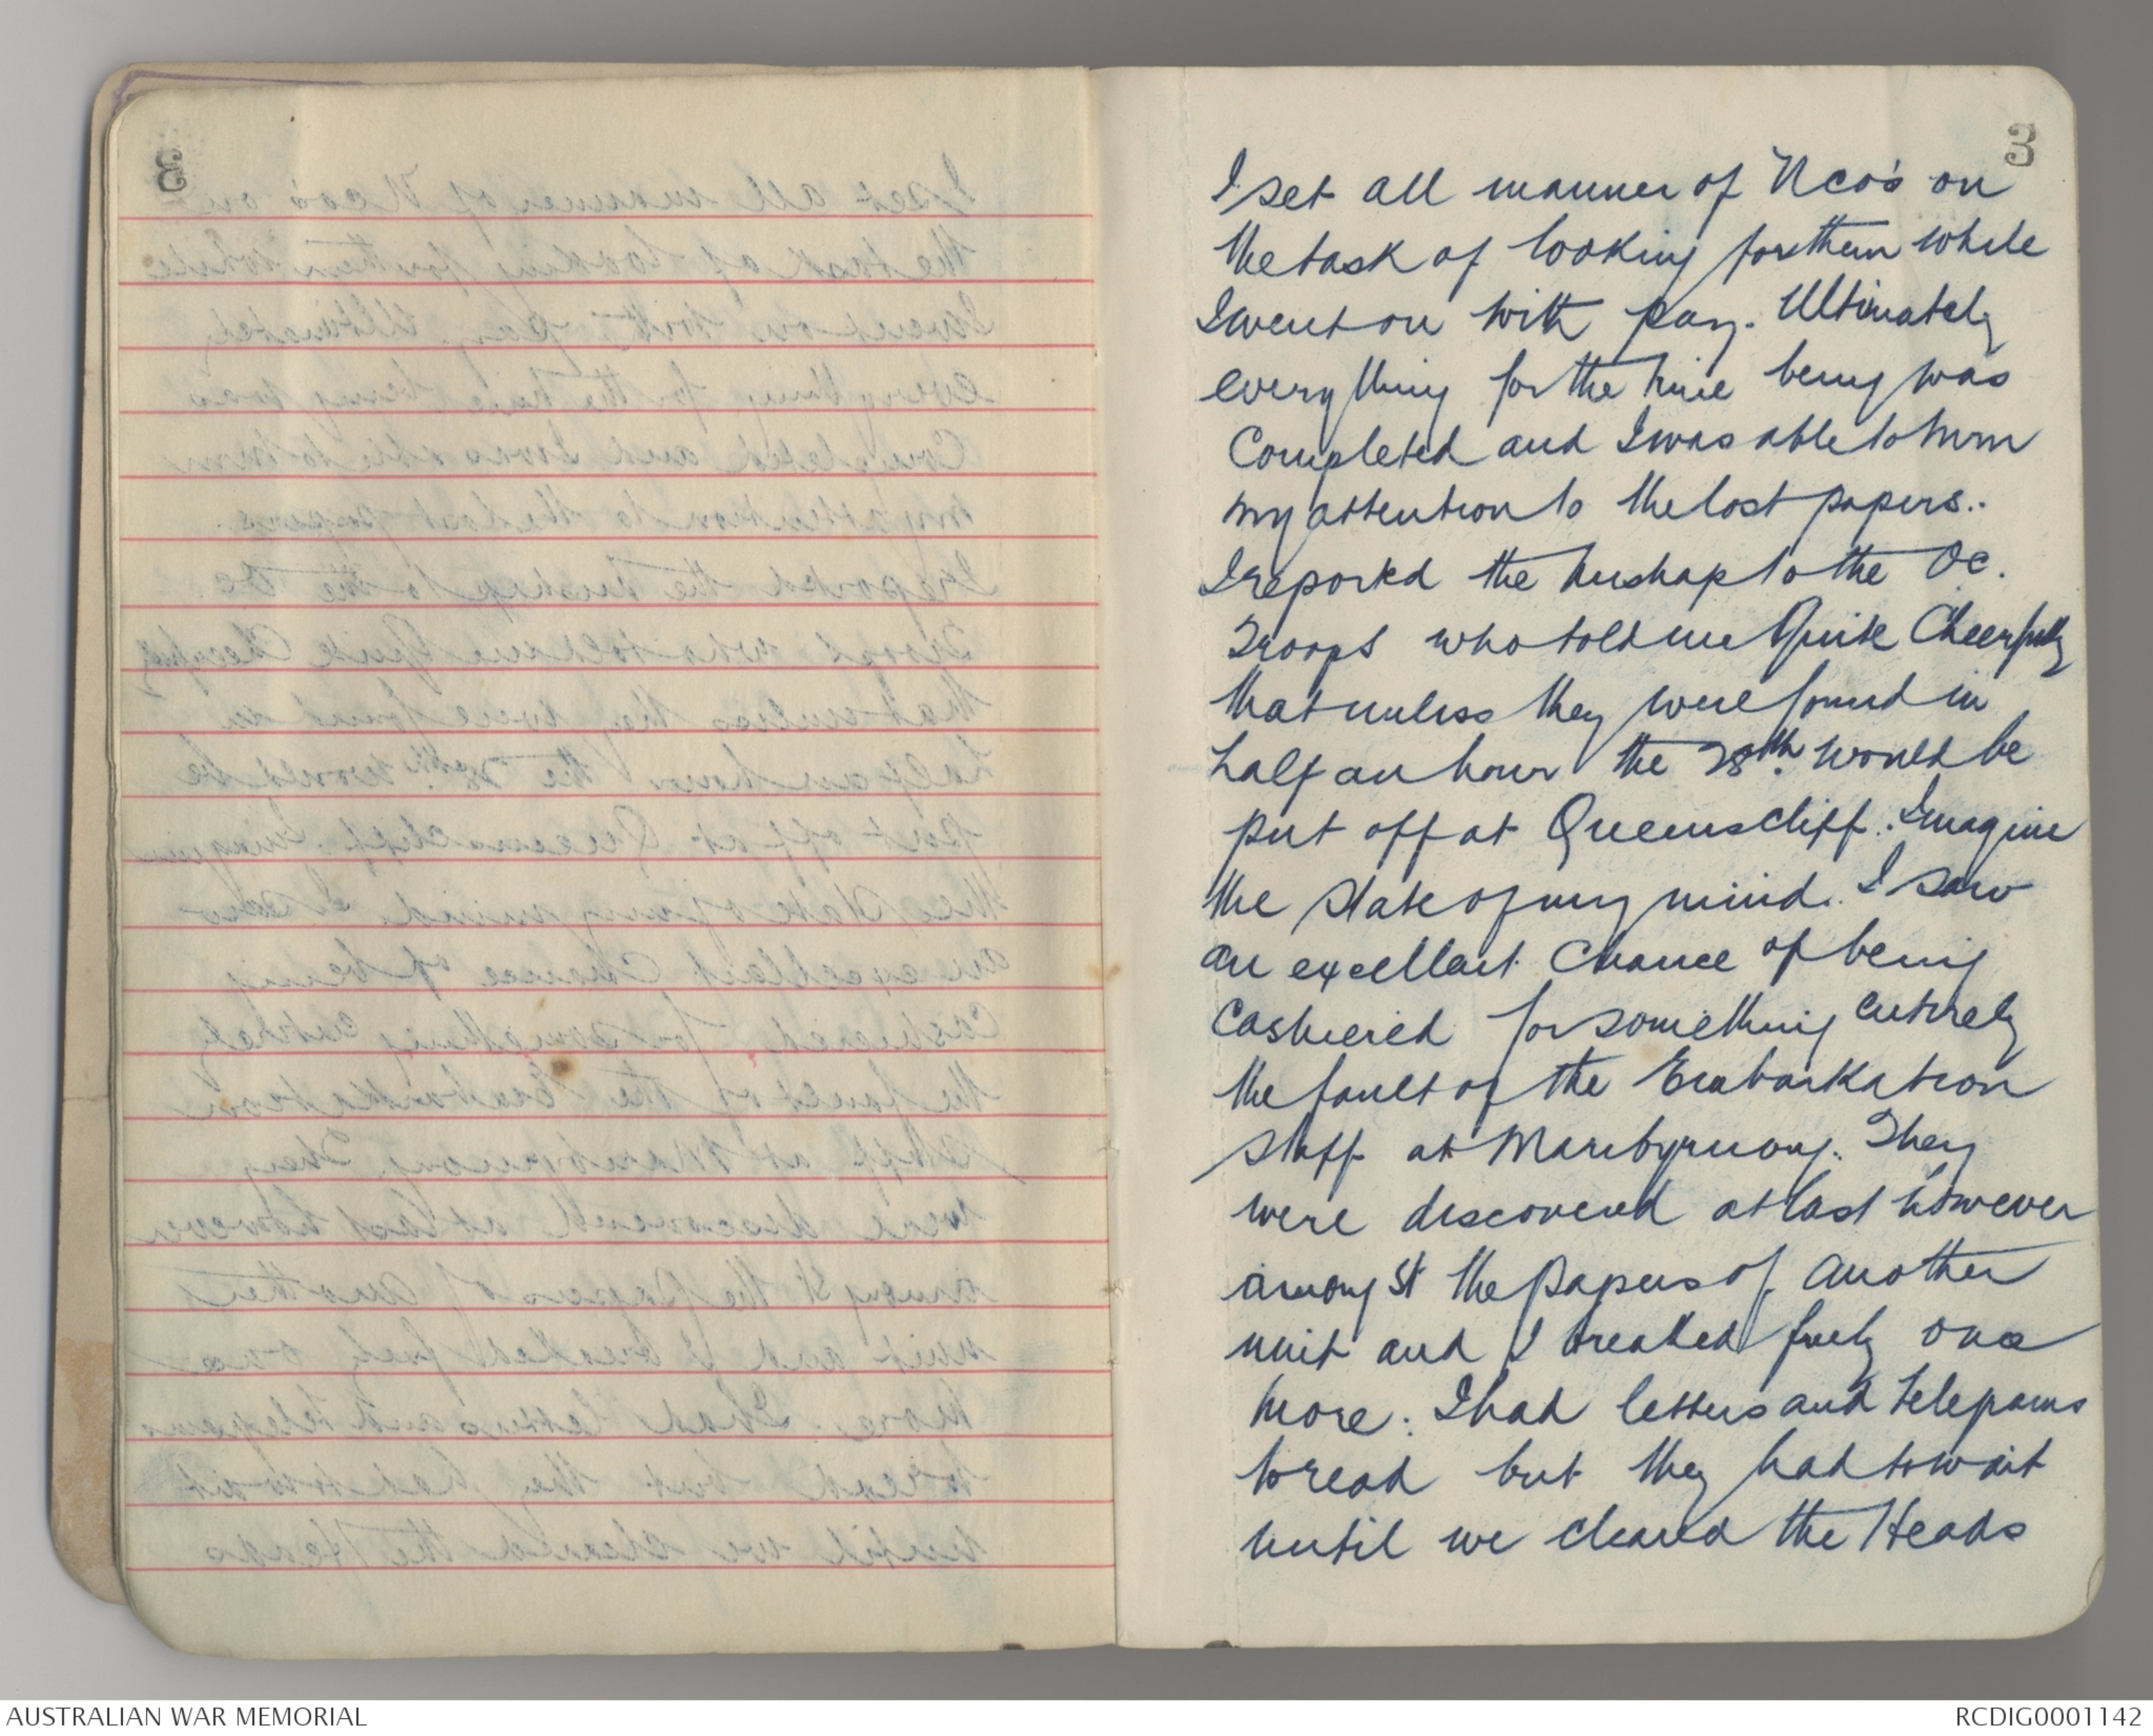 3
I set all manner of Nco's on
the task of looking for them while
I went on with pay. Ultimately
everything for the time being was
Completed and I was able to turn
my attention to the lost papers..
I reported the mishap to the OC.
Troops who told me Quite Cheerfully
that unless they were found in
half an hour the 28th. would be
put off at Queenscliff. Imagine
the state of my mind. I saw
an excellent Chance of being
Cashiered for something entirely
the fault of the Embarkation
Staff at Maribyrnong. They
were discovered at last however
amongst the papers of another
unit and I breathed freely once
more. I had letters and telegrams
to read but they had to wait
until we cleared the Heads
AUSTRALIAN WAR MEMORIAL
RCDIG0001142